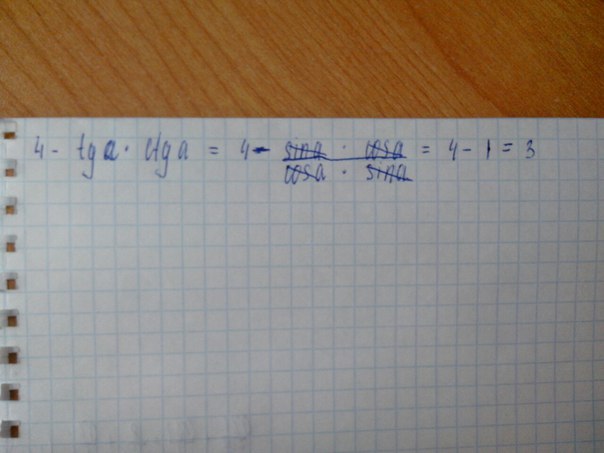 4 - tga · ctga = 4 - sina · cosa / cosa · sina = 4 - 1 = 3